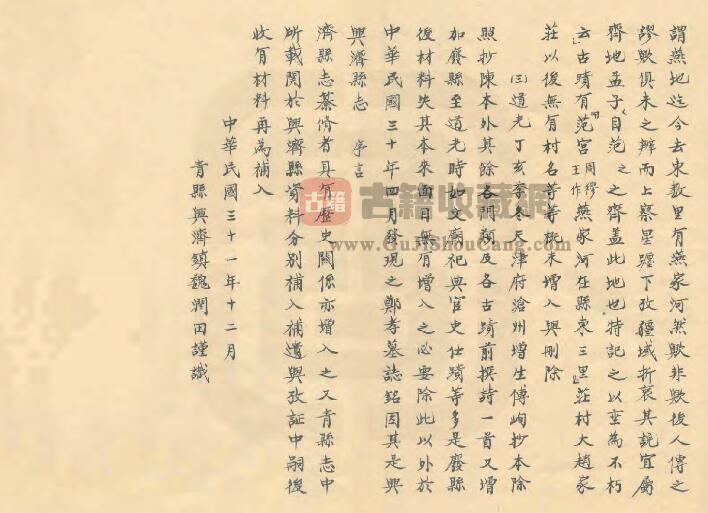 謂燕地迄今去東數里有燕家河然歟非歟後人傳之
謬歟俱未之辨而上察星躔下攷疆域折衷其説宜屬
齊地孟子自范之之齊蓋此地也特記之以垂為不朽
云古蹟有范宮周穆王作燕家河在縣東三里莊村大趙家
莊以後無有村名等等概未增入與刪除
㈢道光丁亥季冬天津府滄州增生傅峋抄本除
照抄陳本外其餘各門類及各古蹟前撰詩一首又增
加廢縣至道光時如文廟祀典官史仕蹟等多是廢縣
後材料失其本來面目無有增入之必要除此以外於
中華民國三十年四月發現之鄭孝墓誌銘因其是興
興濟縣志 序言
濟縣志纂脩者具有歷史關係亦增入之又青縣志中
所載関於興濟縣資料分別補入補遺與攷証中嗣後
收有材料再為補入
中華民國三十一年十二月
青縣興濟鎮魏潤田謹識
古籍 古籍收藏網
www.GuJiShouCang.com